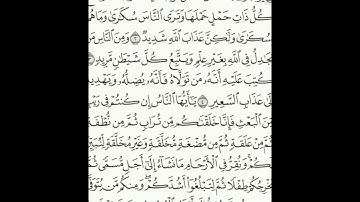 كُلُّ ذَاتِ حَمْلٍ حَمْلَهَا وَتَرَى ٱلنَّاسَ سُكَٰرَىٰ وَمَا هُم
سُكَٰرَىٰ وَلَٰكِنَّ عَذَابَ ٱللَّهِ شَدِيدٌ ۝٢ وَمِنَ ٱلنَّاسِ مَن
يُجَٰدِلُ فِي ٱللَّهِ بِغَيْرِ عِلْمٍ وَيَتَّبِعُ كُلَّ شَيْطَٰنٍ مَّرِيدٍ
كُتِبَ عَلَيْهِ أَنَّهُۥ مَن تَوَلَّاهُ فَأَنَّهُۥ يُضِلُّهُۥ وَيَهْدِيهِ
إِلَىٰ عَذَابِ ٱلسَّعِيرِ ۝٤ يَٰٓأَيُّهَا ٱلنَّاسُ إِن كُنتُمْ فِي رَيْبٍ
مِّنَ ٱلْبَعْثِ فَإِنَّا خَلَقْنَٰكُم مِّن تُرَابٍ ثُمَّ مِن نُّطْفَةٍ
ثُمَّ مِنْ عَلَقَةٍ ثُمَّ مِن مُّضْغَةٍ مُّخَلَّقَةٍ وَغَيْرِ مُخَلَّقَةٍ لِّنُبَيِّنَ
لَكُمْ ۚ وَنُقِرُّ فِي ٱلْأَرْحَامِ مَا نَشَآءُ إِلَىٰٓ أَجَلٍ مُّسَمًّى ثُمَّ
نُخْرِجُكُمْ طِفْلًا ثُمَّ لِتَبْلُغُوٓا۟ أَشُدَّكُمْ ۖ وَمِنكُم مَّن يُتَوَفَّىٰ